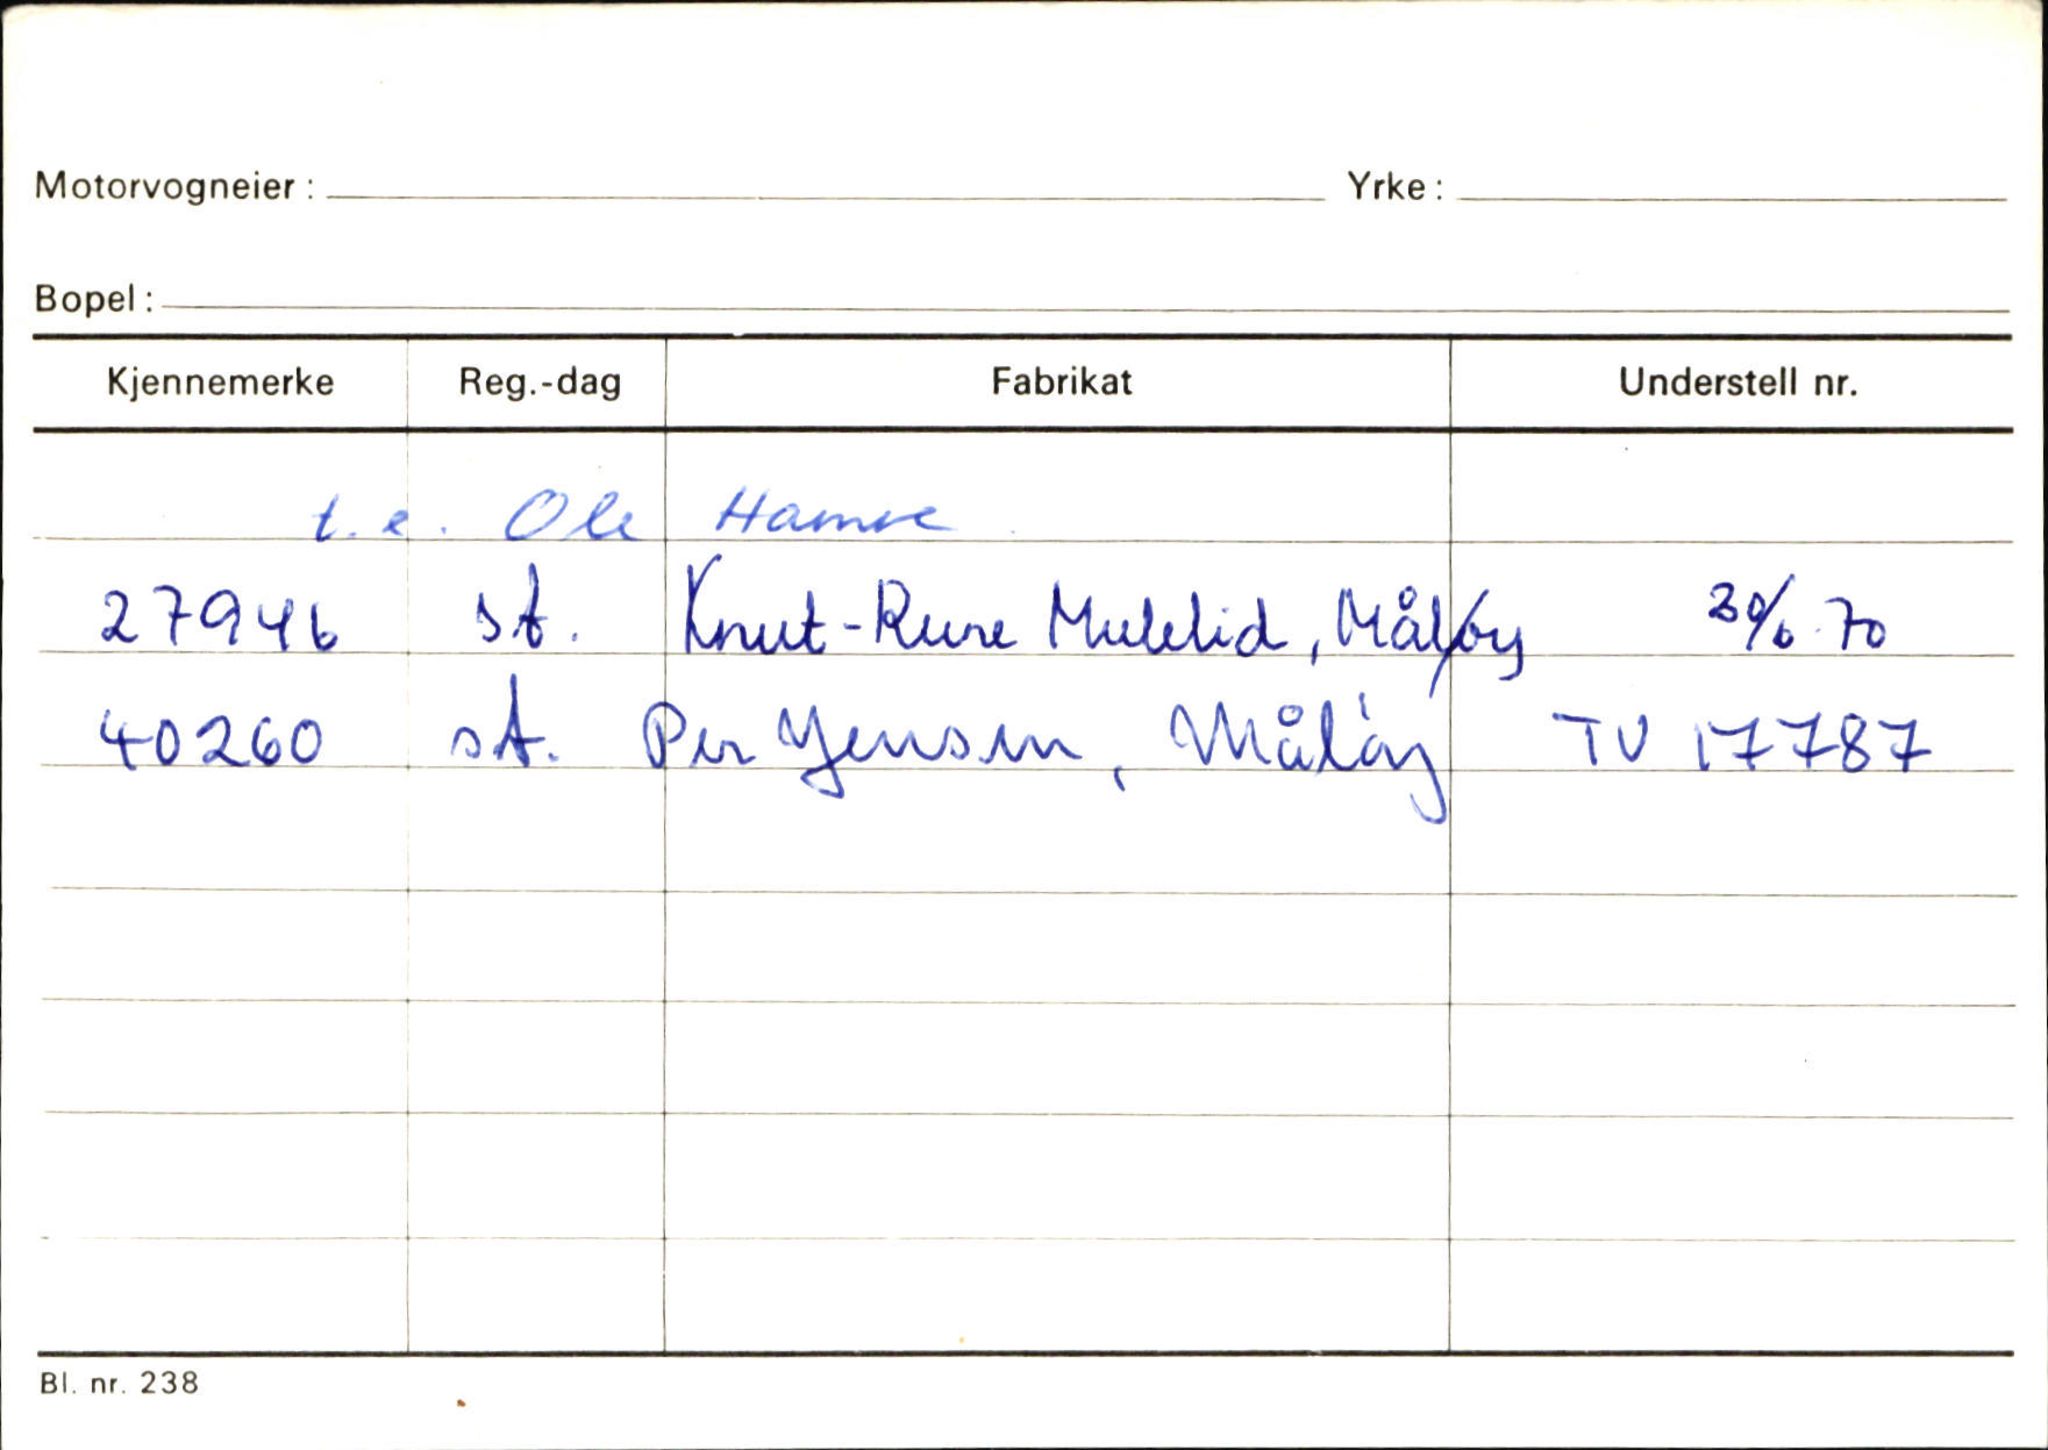 Motorvogneier: Yrke:
Bopel:
Kjennemerke Reg.-dag Fabrikat Understell nr.
t.e. Ole Hamre
27946 st. Knut-Rune Mulelid, Måløy 30/6 70
40260 st. Per Jensen, Måløy TV 17787
Bl. nr. 238